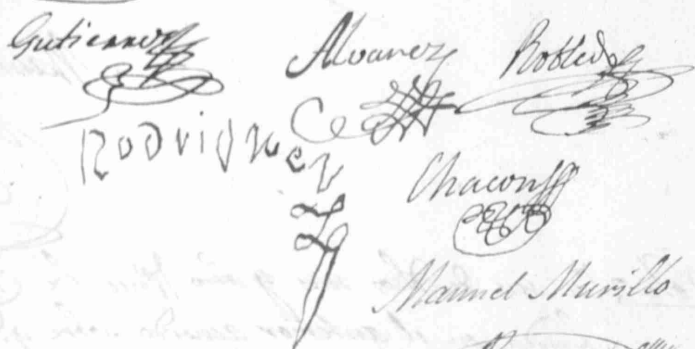 Gutierrez Alvarez Robledo
Rodriguez
Chacon
Manuel Murillo